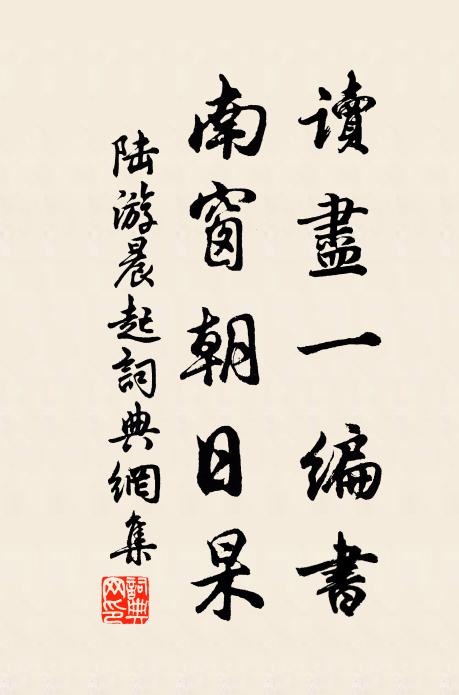 讀盡一編書
南窗朝日杲
陸游晨起詞典網集
詞典网印